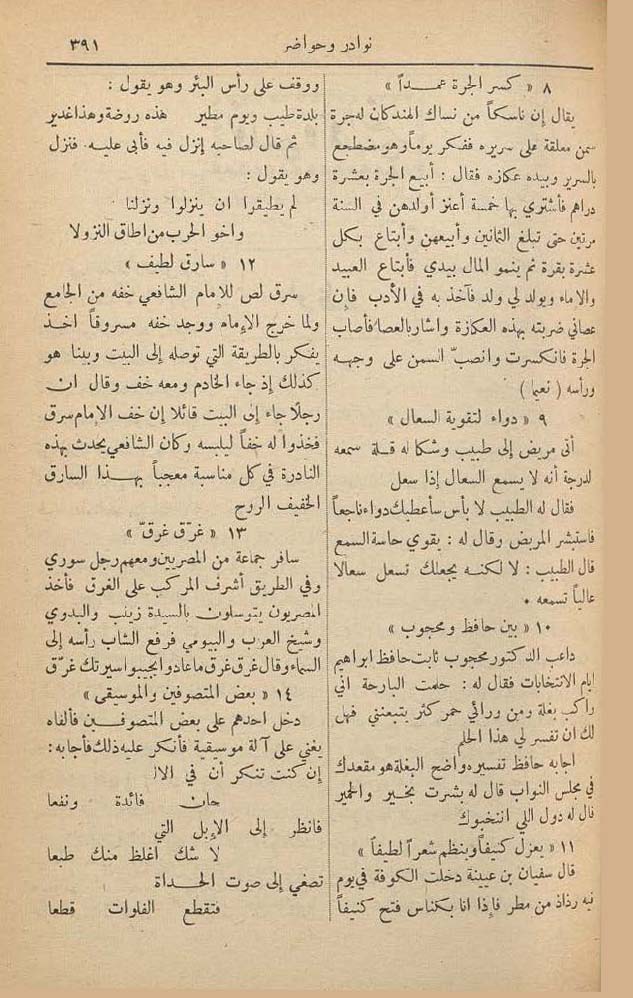 نوادر وحواضر
٣٩١
٨ « كسر الجرة عمداً »
يقال إن ناسكاً من نساك الهند كان له جرة
سمن معلقة على سريره ففكر يوماً وهو مضطجع
بالسرير وبيده عكازه فقال : أبيع الجرة بعشرة
دراهم فأشتري بها خمسة أعنز أولدهن في السنة
مرتين حتى تبلغ الثمانين وأبيعهن وأبتاع بكل
عشرة بقرة ثم ينمو المال بيدي فأبتاع العبيد
والاماء ويولد لي ولد فآخذ به في الأدب فإن
عصاني ضربته بهذه العكازة واشار بالعصا فأصاب
الجرة فانكسرت وانصبّ السمن على وجهه
ورأسه ( نعيما )
٩ « دواء لتقوية السعال »
أتى مريض إلى طبيب وشكا له قلة سمعه
لدرجة أنه لا يسمع السعال إذا سعل
فقال له الطبيب لا بأس سأعطيك دواء ناجعاً
فاستبشر المريض وقال له : يقوي حاسة السمع
قال الطبيب : لا لكنه يجعلك تسعل سعالا
عالياً تسمعه .
١٠ « بين حافظ ومحجوب »
داعب الدكتور محجوب ثابت حافظ ابراهيم
ايام الانتخابات فقال له : حلمت البارحة اني
راكب بغلة ومن ورائي حمر كثر يتبعنني فهل
لك ان تفسر لي هذا الحلم
اجابه حافظ تفسيره واضح البغلة هو مقعدك
في مجلس النواب قال له بشرت بخير والحمير
قال له دول اللي انتخبوك
١١ « يعزل كنيفاً وينظم شعراً لطيفاً »
قال سفيان بن عيينة دخلت الكوفة في يوم
فيه رذاذ من مطر فإذا انا بكناس فتح كنيفاً
ووقف على رأس البئر وهو يقول :
بلدة طيب ويوم مطير هذه روضة وهذا غدير
ثم قال لصاحبه إنزل فيه فأبى عليه . فنزل
وهو يقول :
لم يطيقوا ان ينزلوا ونزلنا
واخو الحرب من اطاق النزولا
١٢ « سارق لطيف »
سرق لص للإمام الشافعي خفه من الجامع
ولما خرج الإمام ووجد خفه مسروقاً اخذ
يفكر بالطريقة التي توصله إلى البيت وبينا هو
كذلك إذ جاء الخادم ومعه خف وقال ان
رجلاً جاء إلى البيت قائلا إن خف الإمام سرق
فخذوا له خفاً ليلبسه وكان الشافعي يحدث بهذه
النادرة في كل مناسبة معجباً بهذا السارق
الخفيف الروح
١٣ « غرّق غرقّ »
سافر جماعة من المصريين ومعهم رجل سوري
وفي الطريق أشرف المركب على الغرق فأخذ
المصريون يتوسلون بالسيدة زينب والبدوي
وشيخ العرب والبيومي فرفع الشاب رأسه إلى
السماء وقال غرق غرق ما عادوا يجيبوا سيرتك غرّق
١٤ « بعض المتصوفين والموسيقى »
دخل احدهم على بعض المتصوفين فألفاه
يغني على آلة موسيقية فأنكر عليه ذلك فأجابه :
إن كنت تنكر أن في الال
حان فائدة ونفعا
فانظر إلى الإبل التي
لا شك اغلظ منك طبعا
تصغي إلى صوت الحداة
فتقطع الفلوات قطعا